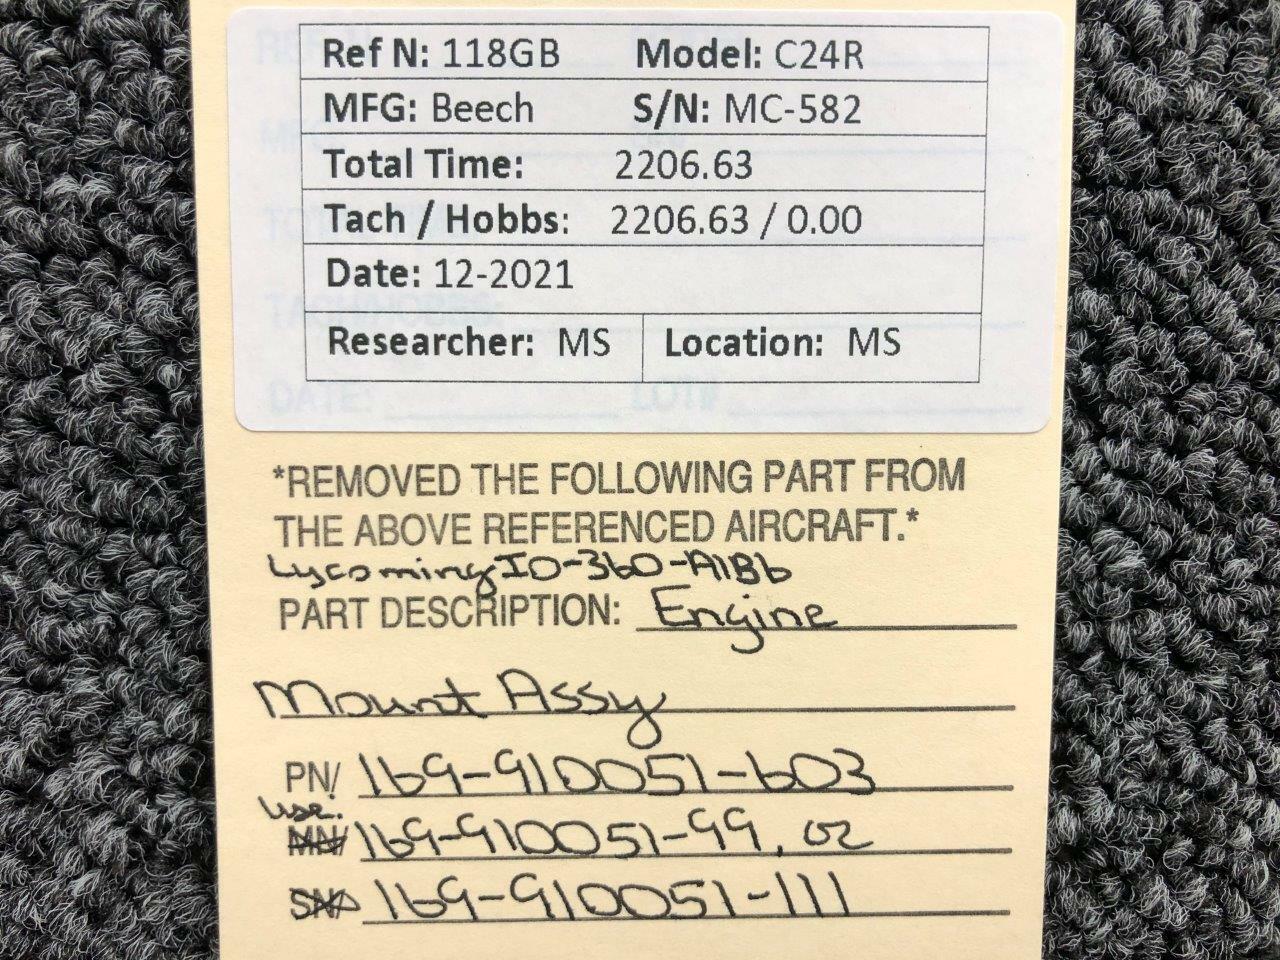 Ref N: 118GB Model: C24R
MFG: Beech S/N: MC-582
Total Time: 2206.63
Tach / Hobbs: 2206.63 / 0.00
Date: 12-2021
Researcher: MS Location: MS
DATE: LOT#
*REMOVED THE FOLLOWING PART FROM
THE ABOVE REFERENCED AIRCRAFT.*
Lycoming IO-360-A1B6
PART DESCRIPTION: Engine
Mount Assy
PN/ 169-910051-603
use.
MN/ 169-910051-99, or
SN/ 169-910051-111